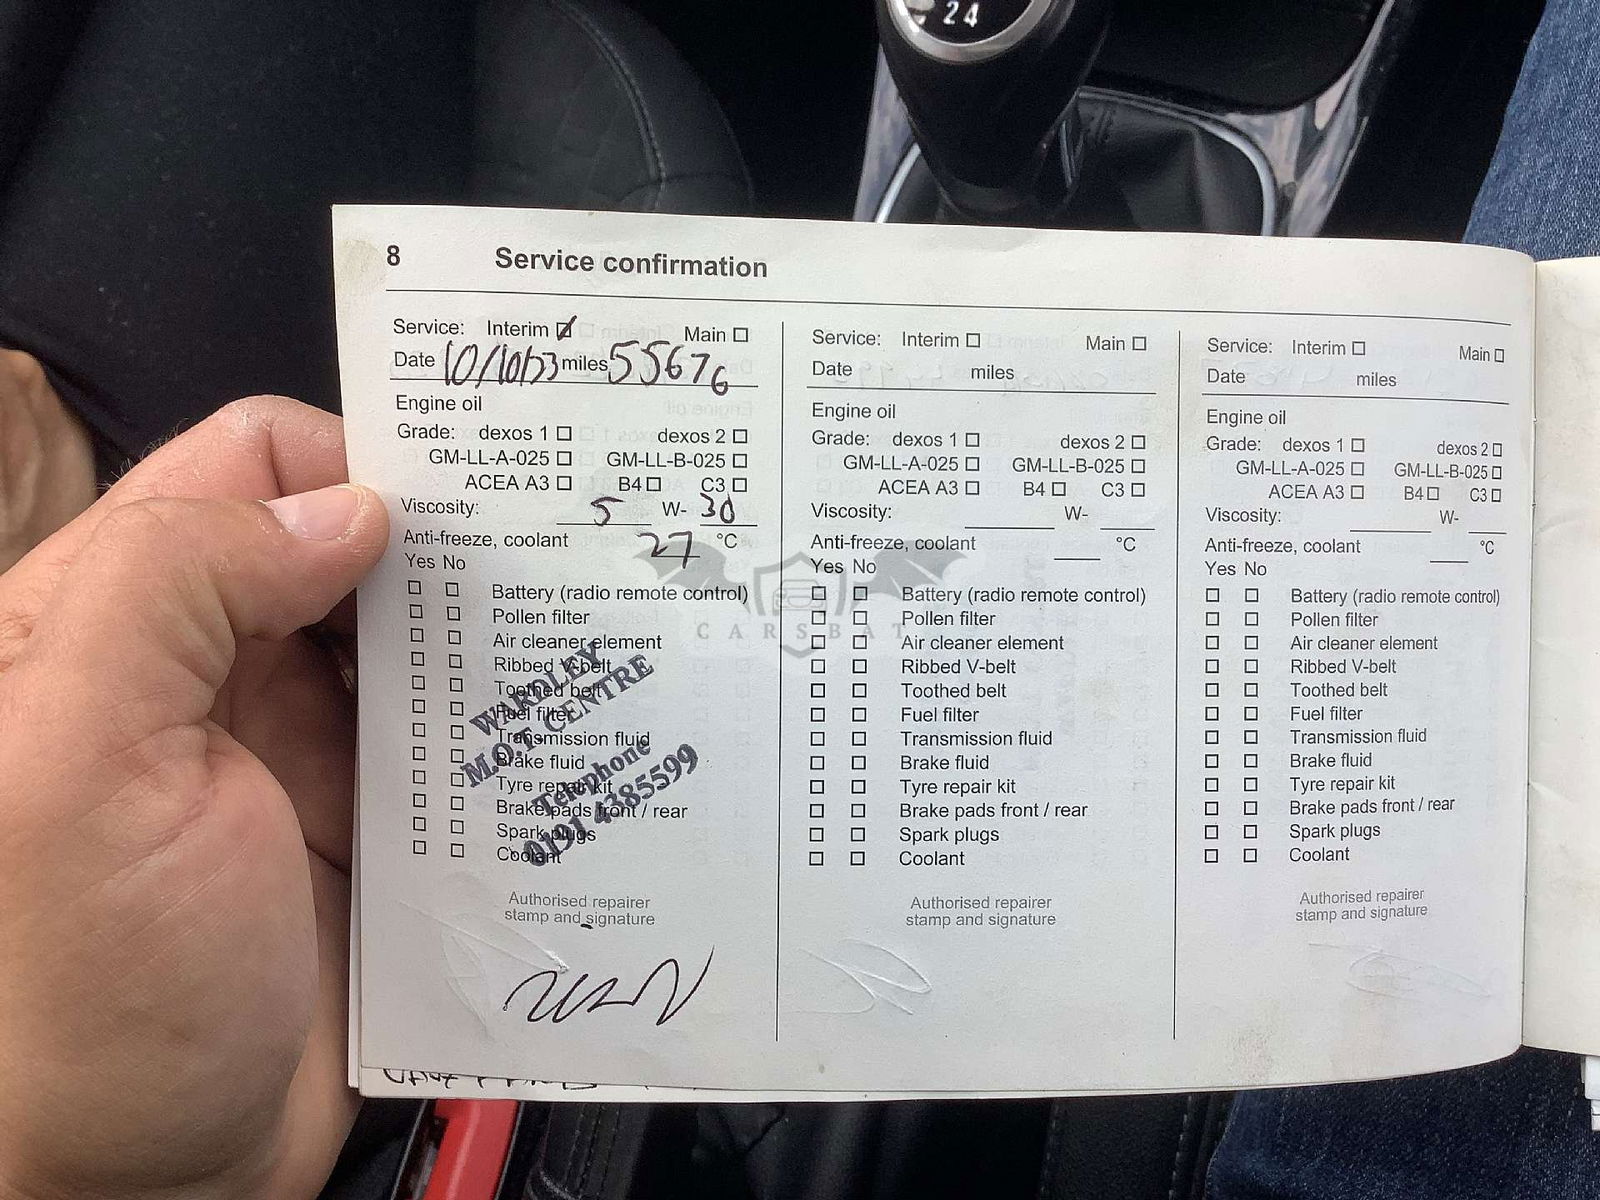 2 4
8 Service confirmation
Service: Interim ☑ Main ☐
Date 10/10/23 miles 55676
Engine oil
Grade: dexos 1 ☐ dexos 2 ☐
GM-LL-A-025 ☐ GM-LL-B-025 ☐
ACEA A3 ☐ B4 ☐ C3 ☐
Viscosity: 5 W- 30
Anti-freeze, coolant 27 °C
Yes No
☐ ☐ Battery (radio remote control)
☐ ☐ Pollen filter
☐ ☐ Air cleaner element
☐ ☐ Ribbed V-belt
☐ ☐ Toothed belt
☐ ☐ Fuel filter
☐ ☐ Transmission fluid
☐ ☐ Brake fluid
☐ ☐ Tyre repair kit
☐ ☐ Brake pads front / rear
☐ ☐ Spark plugs
☐ ☐ Coolant
WARDLEY
M.O.T. CENTRE
Telephone
0191 4385599
Authorised repairer
stamp and signature
Service: Interim ☐ Main ☐
Date miles
Engine oil
Grade: dexos 1 ☐ dexos 2 ☐
GM-LL-A-025 ☐ GM-LL-B-025 ☐
ACEA A3 ☐ B4 ☐ C3 ☐
Viscosity: ____ W- ____
Anti-freeze, coolant ____ °C
Yes No
☐ ☐ Battery (radio remote control)
☐ ☐ Pollen filter
☐ ☐ Air cleaner element
☐ ☐ Ribbed V-belt
☐ ☐ Toothed belt
☐ ☐ Fuel filter
☐ ☐ Transmission fluid
☐ ☐ Brake fluid
☐ ☐ Tyre repair kit
☐ ☐ Brake pads front / rear
☐ ☐ Spark plugs
☐ ☐ Coolant
Authorised repairer
stamp and signature
Service: Interim ☐ Main ☐
Date miles
Engine oil
Grade: dexos 1 ☐ dexos 2 ☐
GM-LL-A-025 ☐ GM-LL-B-025 ☐
ACEA A3 ☐ B4 ☐ C3 ☐
Viscosity: ____ W- ____
Anti-freeze, coolant ____ °C
Yes No
☐ ☐ Battery (radio remote control)
☐ ☐ Pollen filter
☐ ☐ Air cleaner element
☐ ☐ Ribbed V-belt
☐ ☐ Toothed belt
☐ ☐ Fuel filter
☐ ☐ Transmission fluid
☐ ☐ Brake fluid
☐ ☐ Tyre repair kit
☐ ☐ Brake pads front / rear
☐ ☐ Spark plugs
☐ ☐ Coolant
Authorised repairer
stamp and signature
CARSBAT